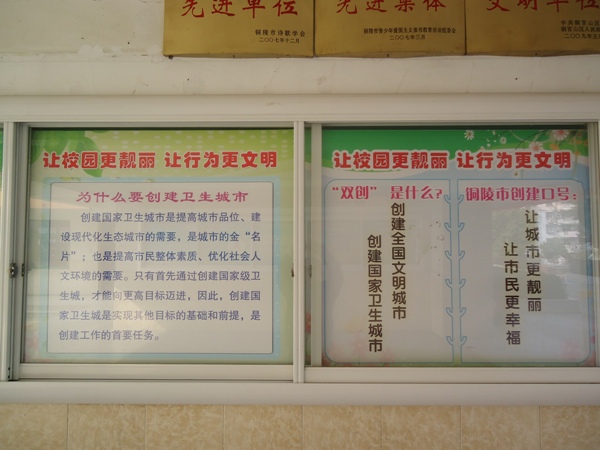 先进单位
铜陵市诗歌学会
二〇〇七年十二月
先进集体
二〇〇七年三月
文明单
让校园更靓丽 让行为更文明
为什么要创建卫生城市
创建国家卫生城市是提高城市品位、建
设现代化生态城市的需要，是城市的金“名
片”；也是提高市民整体素质、优化社会人
文环境的需要。只有首先通过创建国家级卫
生城，才能向更高目标迈进，因此，创建国
家卫生城是实现其他目标的基础和前提，是
创建工作的首要任务。
让校园更靓丽 让行为更文明
“双创”是什么？
创建全国文明城市
创建国家卫生城市
铜陵市创建口号：
让城市更靓丽
让市民更幸福